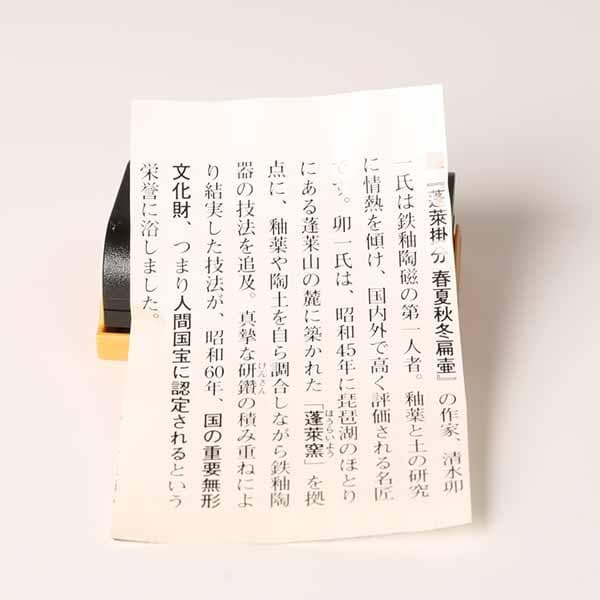 『蓬萊掛分 春夏秋冬扁壷』の作家、清水卯
一氏は鉄釉陶磁の第一人者。釉薬と土の研究
に情熱を傾け、国内外で高く評価される名匠
です。卯一氏は、昭和45年に琵琶湖のほとり
にある蓬萊山の麓に築かれた「蓬萊窯」を拠
ほうらいよう
点に、釉薬や陶土を自ら調合しながら鉄釉陶
器の技法を追及。真摯な研鑽の積み重ねによ
けんさん
り結実した技法が、昭和60年、国の重要無形
文化財、つまり人間国宝に認定されるという
栄誉に浴しました。